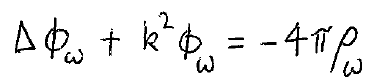 Δϕ_ω + k²ϕ_ω = -4πρ_ω